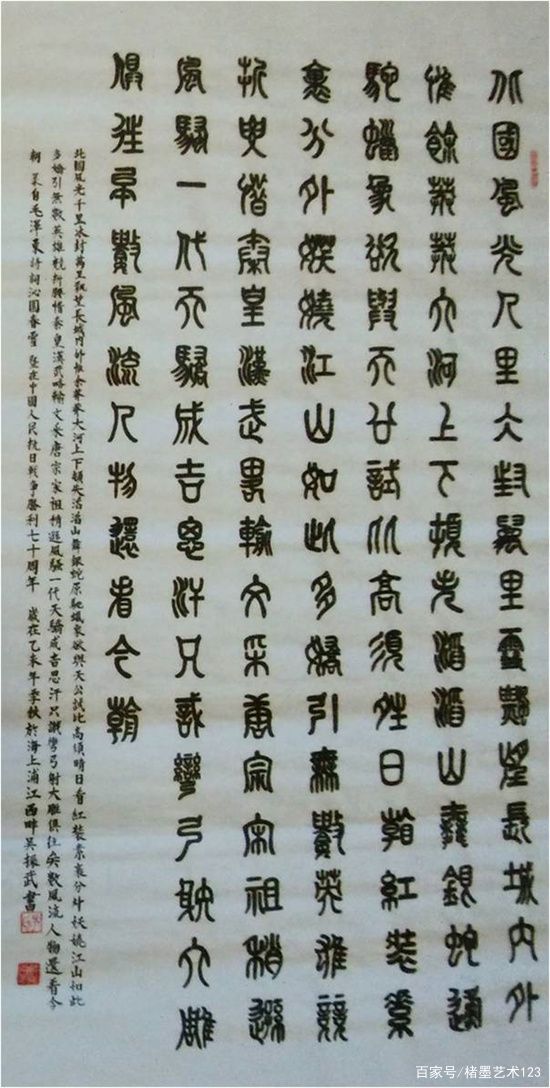 北國風光千里冰封萬里雪飄望長城内外
惟餘莽莽大河上下頓失滔滔山舞銀蛇原
馳蠟象欲與天公試比高須晴日看紅裝素
裹分外妖嬈江山如此多嬌引無數英雄競
折腰惜秦皇漢武略輸文采唐宗宋祖稍遜
風騷一代天驕成吉思汗只識彎弓射大雕
俱往矣數風流人物還看今朝
北國風光千里冰封萬里飄望長城内外惟余莽莽大河上下頓失滔滔山舞銀蛇原馳蠟象欲與天公試比高須晴日看紅裝素裹分外妖嬈江山如此
多嬌引無數英雄競折腰惜秦皇漢武略輸文采唐宗宋祖稍遜風騷一代天驕成吉思汗只識彎弓射大雕俱往矣數風流人物還看今
朝 录自毛澤東詩詞沁園春雪 在中國人民抗日戰争勝利七十周年 歲在乙未年季秋於海上浦江西畔吴振武書
百家号/楮墨艺术123